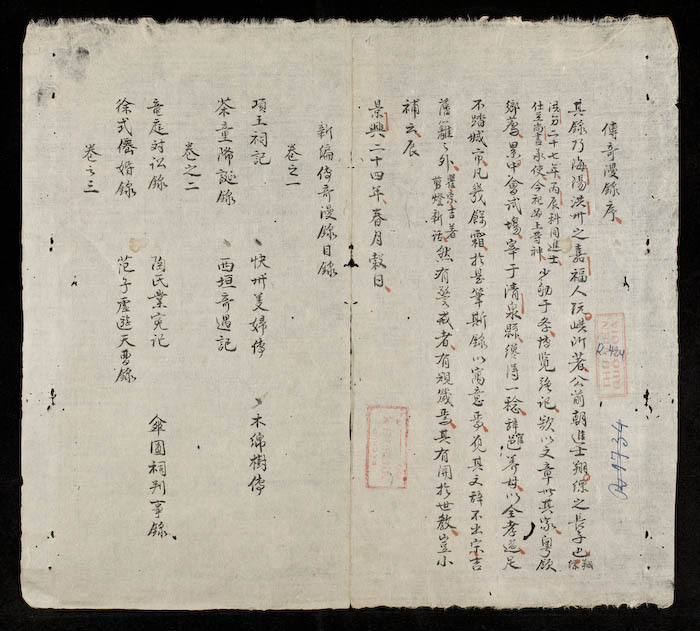 傳奇漫錄序
其錄乃海陽洪州之嘉福人阮嶼所著公前朝進士翔縹之長子也翔縹
洪 二十七年丙辰科同進士
仕至尚書承使今祀為上等神
少劬于学博覽強記欲以文章世其家粵領
鄉薦累中會試場宰于清泉縣纔得一稔辞邑养母以全孝道足
不踏城市凡幾餘霜於是筆斯錄以寓意焉观其文辞不出宗吉
藩籬之外
瞿宗吉著
剪燈新話
然有警戒者有規箴焉其有関於世教豈小
補云辰
景興二十四年春月穀日
新編傳奇漫錄目錄
卷之一
項王祠記 快州義婦傳 木綿樹傳
茶童降誕錄 西垣奇遇記
卷之二
竜庭对訟錄 陶氏業冤記 傘圓祠判事錄
徐式僊婚錄 范子虛遊天曹錄
卷之三
R.424
R.1734